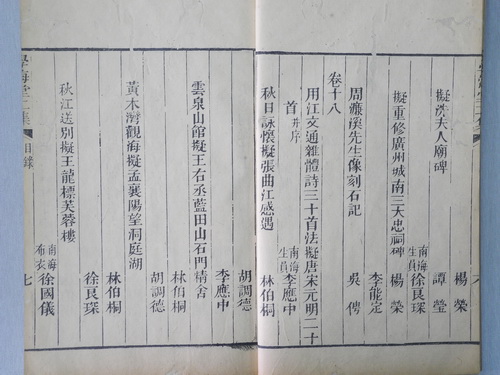 楊榮
擬洗夫人廟碑 譚瑩
南海生員徐良琛
擬重修廣州城南三大忠祠碑 楊榮
李能定
周濂溪先生像刻石記 吳俜
卷十八
用江文通雜體詩三十首法擬唐宋元明二十
首并序 南海生員李應中
秋日詠懷擬張曲江感遇 林伯桐
胡調德
李應中
雲泉山館擬王右丞藍田山石門精舍
林伯桐
胡調德
黃木灣觀海擬孟襄陽望洞庭湖
林伯桐
徐良琛
秋江送別擬王龍標芙蓉樓
南海布衣徐國儀
學海堂二集 目錄 七